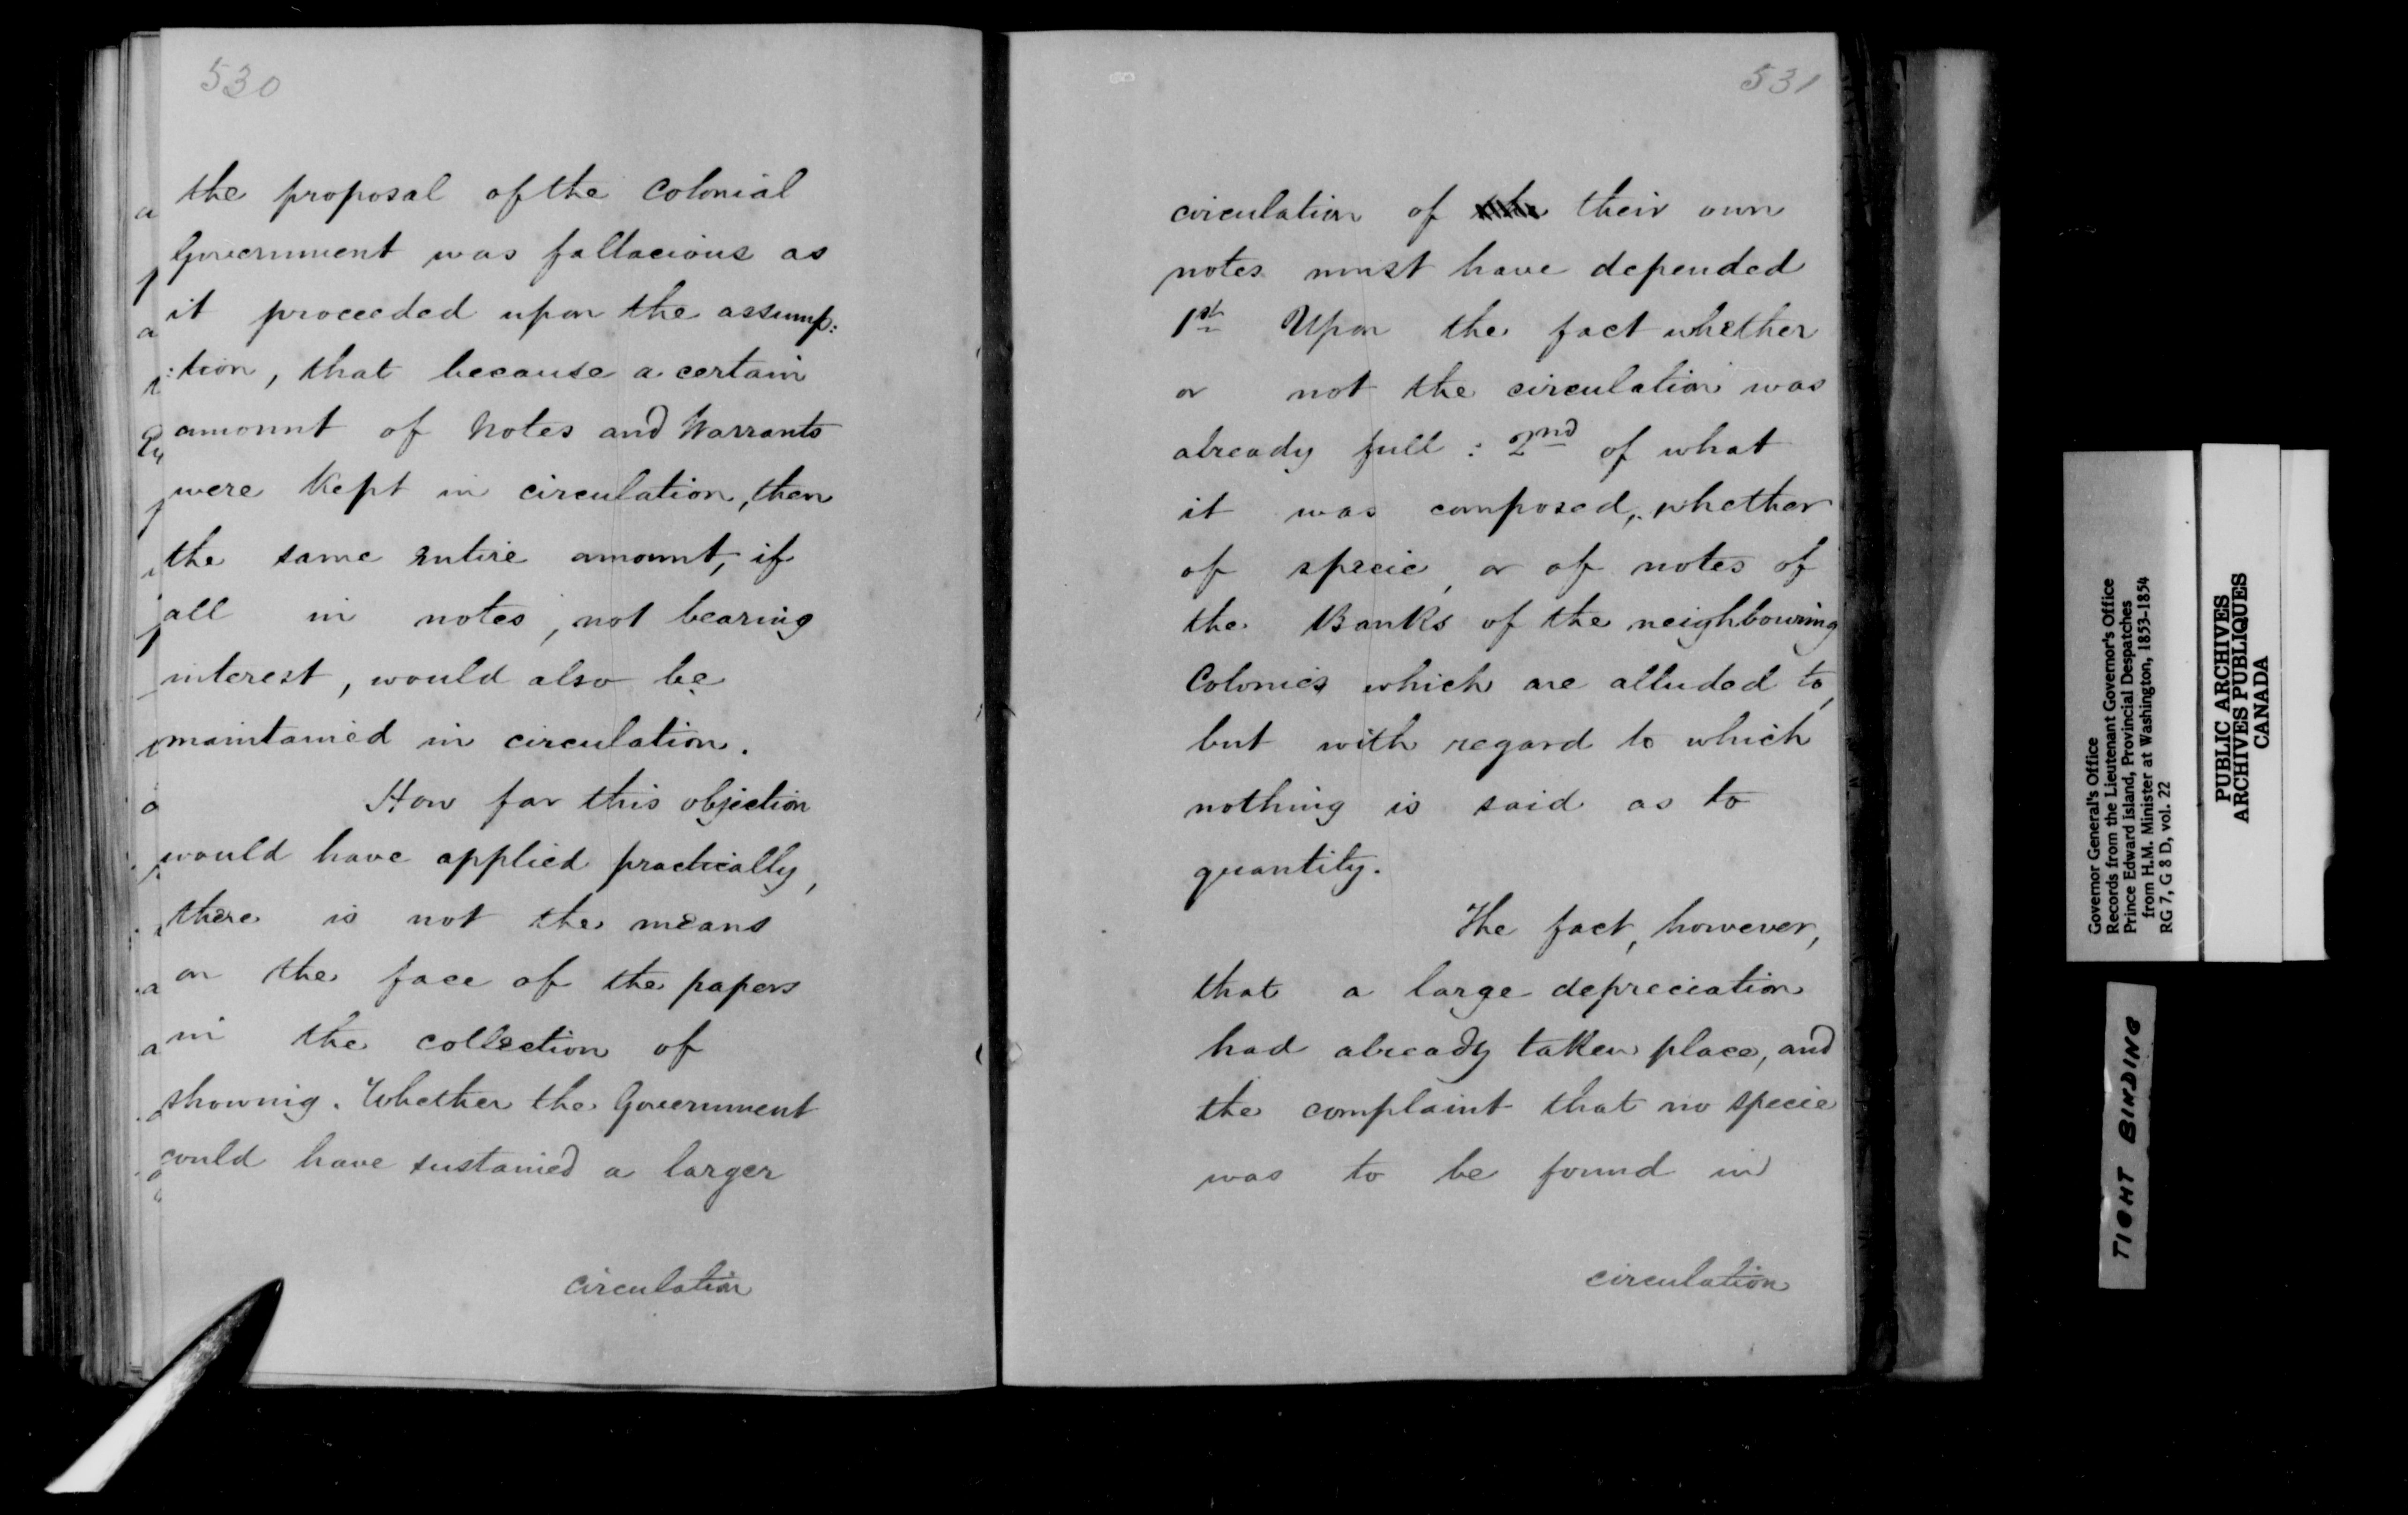 530
the proposal of the Colonial
Government was fallacious as
it proceeded upon the assump:
:tion, that because a certain
amount of Notes and Warrants
were Kept in circulation, then
the same entire amount, if
all in notes, not bearing
interest, would also be
maintained in circulation.
How far this objection
would have applied practically,
there is not the means
on the face of the papers
in the collection of
showing. Whether the Government
could have sustained a larger
circulation
531
circulation of their own
notes must have depended
1st Upon the fact whether
or not the circulation was
already full : 2nd of what
it was composed, whether
of specie, or of notes of
the Banks of the neighbouring
Colonies which are alluded to,
but with regard to which
nothing is said as to
quantity.
The fact, however,
that a large depreciation
had already taken place, and
the complaint that no specie
was to be found in
circulation
Governor General's Office
Records from the Lieutenant Governor's Office
Prince Edward Island, Provincial Despatches
from H.M. Minister at Washington, 1853-1854
RG 7, G 8 D, vol. 22
PUBLIC ARCHIVES
ARCHIVES PUBLIQUES
CANADA
TIGHT BINDING